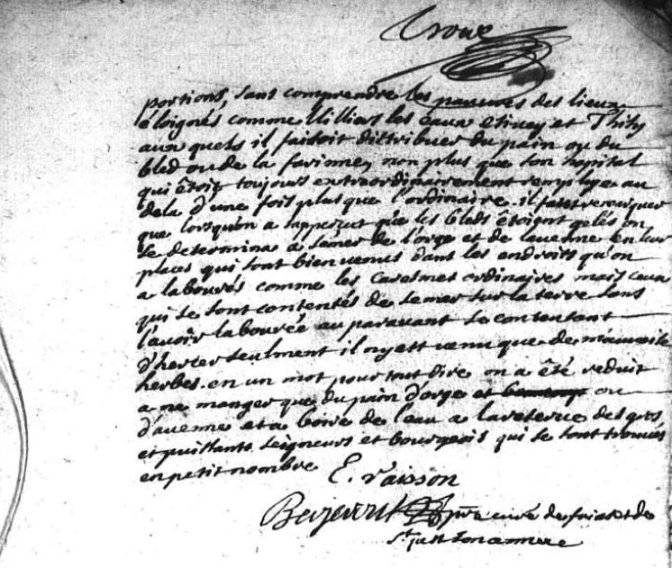 portions, sans comprendre les pauvres des lieux
éloignés comme Williers les eaux etivey et Thisy
aux quels il faisoit distribuer du pain ou du
bled ou de la farinne, non plus que son hopital
qui étoit toujours extraordinairement remply et au
dela d'une fois plus que l'ordinaire. il fault remarquer
que lorsqu'on a apperçut que les bleds étoient gelés on
se determina a semer de l'orge et de l'avenne en leur
places qui sont bien venus dans les endroits qu'on
a labourés comme les Caresmes ordinaires mais ceux
qui se sont contentés de semer sur la terre sans
l'avoir labourée au paravant se contentant
d'herser seulment il n'y est venu que de mauvaise
herbes. en un mot pour tout dire on a été reduit
a ne manger que du pain d'orge et ou
d'avenne et a boire de l'eau a la reserve des gros
et puissants seigneurs et bourgeois qui se sont trouvés
en petit nombre
E. Vaisson
ptre curé de et de
st just